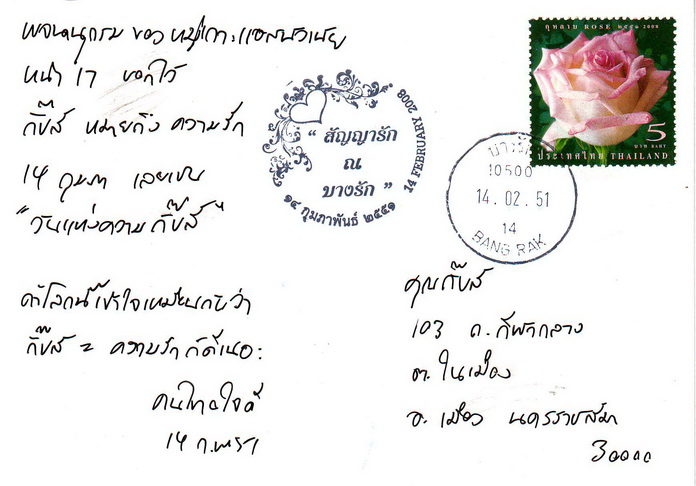 พจนานุกรม ของ
หน้า 17 บอกไว้
กิ๊บส์ หมายถึง ความรัก
14 กุมภา เลยเป็น
"วันแห่งความกิ๊บส์"
ถ้าโลกนี้เข้าใจเหมือนกันว่า
กิ๊บส์ = ความรัก ก็ดีเนอะ
คนไทยใจดี
14 ก.พ. 51
"สัญญารัก
ณ
บางรัก"
๑๔ กุมภาพันธ์ ๒๕๕๑
14 FEBRUARY 2008
กุหลาบ ROSE ๒๕๕๑ 2008
5
บาท BAHT
ประเทศไทย THAILAND
บางรัก
10500
14.02.51
14
BANG RAK
คุณกิ๊บส์
103 ถ.
ต. ในเมือง
อ. เมือง นครราชสีมา
30000